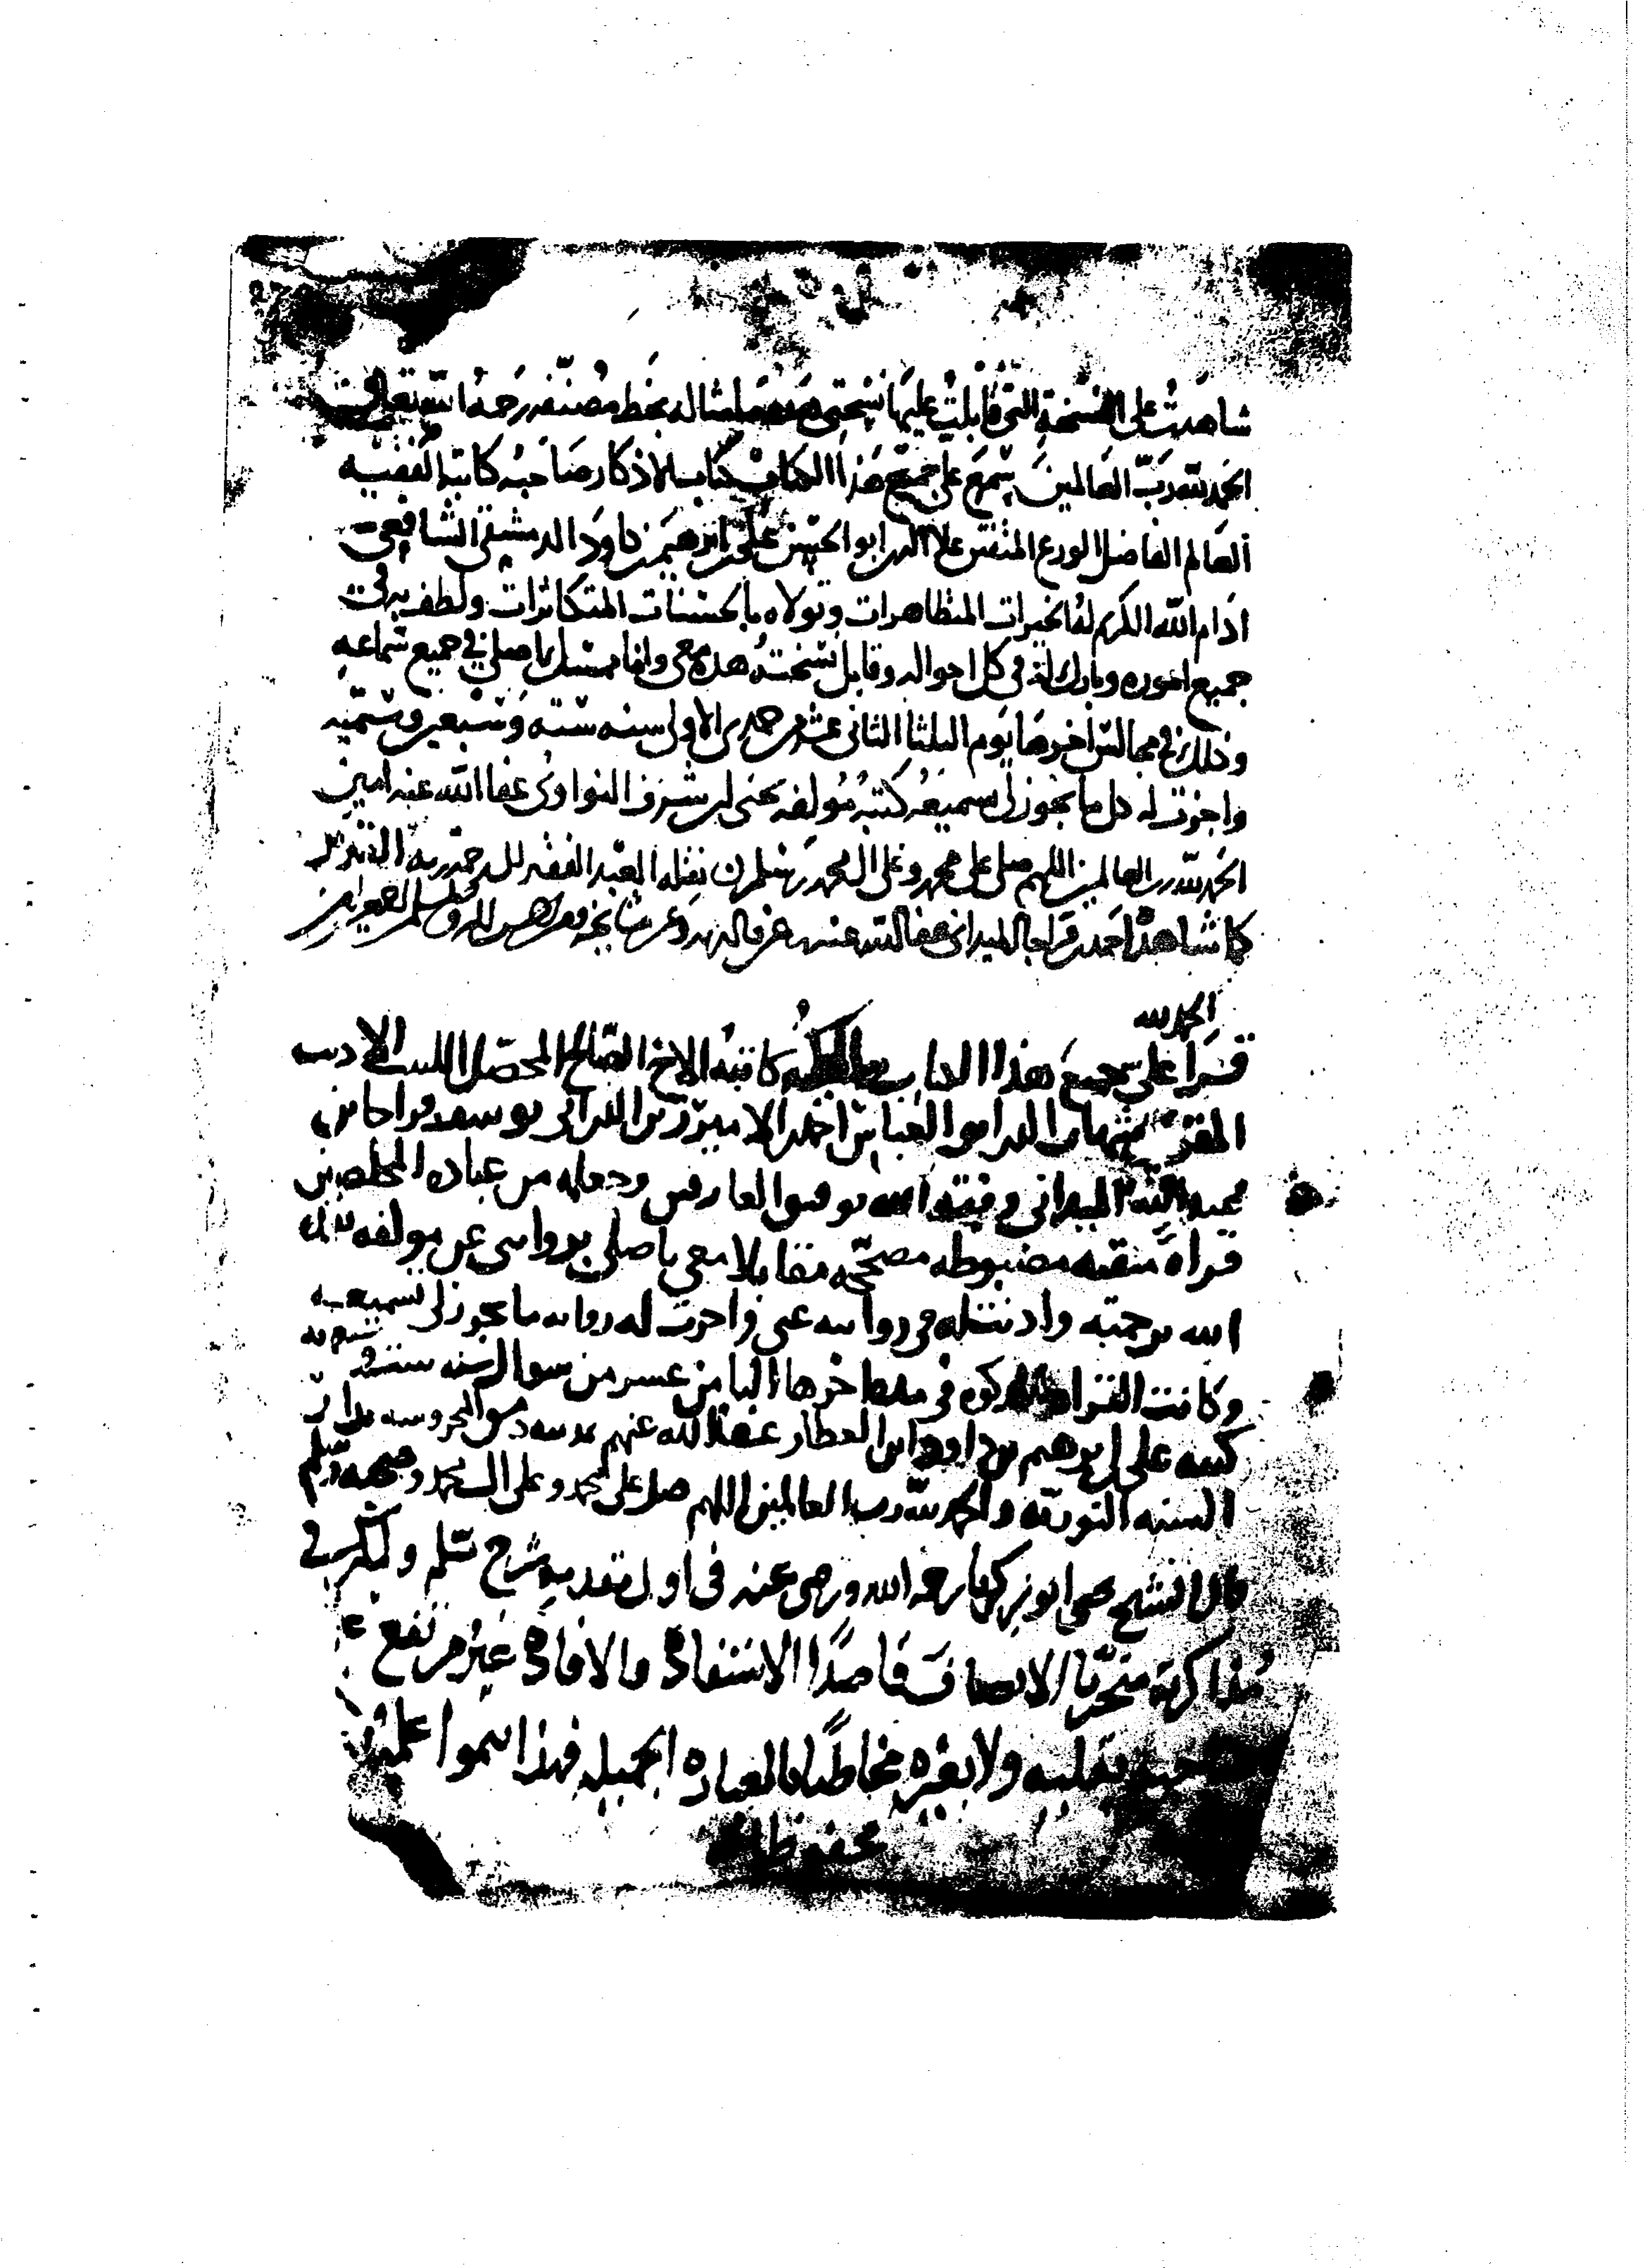 شاهدت على النسخة التي قابلت عليها نسختي هذه ما مثاله بخط مصنفه رحمه الله تعالى
الحمد لله رب العالمين سمع علي جميع هذا الكتاب كتاب الاذكار صاحبه كاتبه الفقيه
العالم الفاضل الورع المتقن علا الدين ابو الحسن علي بن ابرهيم بن داود الدمشقي الشافعي
ادام الله الكريم له الخيرات المتظاهرات وتولاه بالحسنات المتكاثرات ولطف به في
جميع اموره وبارك له في كل احواله وقابل نسخته هذه معي وانا ممسك باصلي في جميع سماعه
وذلك في مجالس اخرها يوم الثلثا الثاني عشر من جمدى الاولى سنه سته وسبعين وستميه
واجزت له كل ما يجوز لي تسميعه كتبه مولفه يحيى بن شرف النواوي عفا الله عنه امين
الحمد لله رب العالمين اللهم صل على محمد وعلى ال محمد وسلم نقله العبد الفقير الى رحمة ربه القدير
كما شاهد احمد بن قراجا الميداني عفا الله عنه غفر الله له وعن مشايخه
الحمد لله
قرا علي جميع هذا الكتاب كاتبه الاخ الصالح المحصل اللبيب الاديب
المقري شهاب الدين ابو العباس احمد بن الامير زين الدين ابي يوسف قراجا بن
عبد الله الميداني وفقه الله توفيق العارفين وجعله من عباده المخلصين
قراة متقنه مضبوطه مصححه مقابلا معي باصلي بروايتي عن مولفه تغمده
الله برحمته واذنت له في روايته عني واجزت له رواية ما يجوز لي تسميعه
وكانت القراة المذكوره في مدة اخرها الثامن عشر من شوال سنه
كتبه علي بن ابرهيم بن داود ابن العطار عفا الله عنهم بمدينه دمشق المحروسه بدار
السنه النوريه والحمد لله رب العالمين اللهم صل على محمد وعلى ال محمد وصحبه وسلم
قال الشيخ محيي ابو زكريا رحمه الله ورضي عنه في اول مقدمة شرح مسلم وليكن في
مذاكرته متحريا الانصاف قاصدا الاستفادة والافادة غير مترفع
بقلبه ولا بغيره مخاطبا بالعباره الجميله فبهذا ينموا علمه
محفوظاته